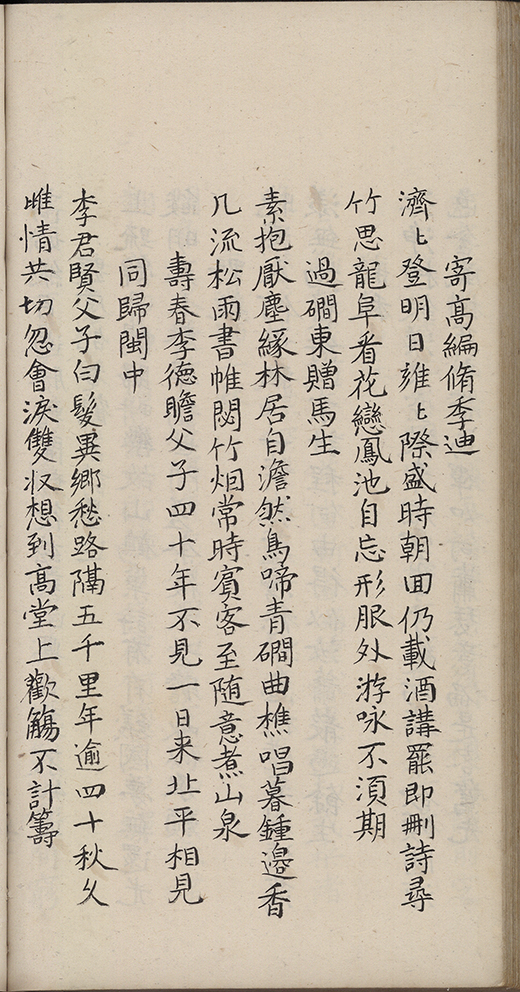 寄高編脩季迪
濟〻登明日雍〻際盛時朝回仍載酒講罷即刪詩尋
竹思龍阜看花戀鳳池自忘形服外游咏不湏期
過磵東贈馬生
素抱厭塵緣林居自澹然鳥啼青磵曲樵唱暮鍾邉香
几流松雨書帷閟竹烟常時賓客至随意煮山泉
壽春李德瞻父子四十年不見一日来北平相見
同歸閩中
李君賢父子白髮異鄉愁路隔五千里年逾四十秋乆
睢情共切忽會淚雙収想到高堂上歡觴不計籌